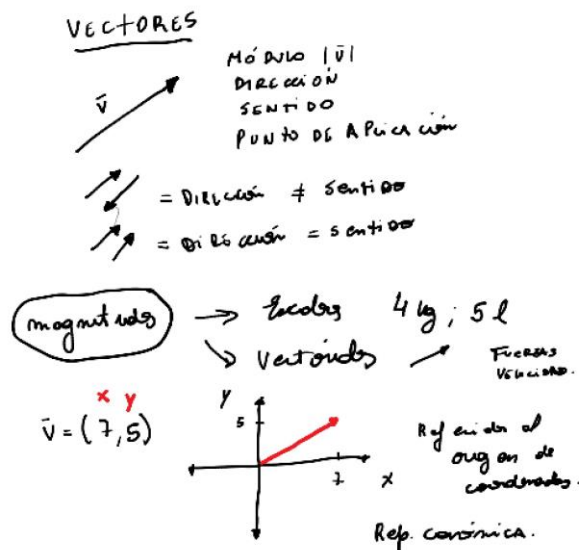 VECTORES
v̄
MÓDULO |v̄|
DIRECCIÓN
SENTIDO
PUNTO DE APLICACIÓN
= DIRECCIÓN ≠ SENTIDO
= DIRECCIÓN = SENTIDO
magnitudes → Escalares 4 kg ; 5 l
Vectoriales FUERZAS
VELOCIDAD.
x y
v̄ = (7,5)
y
5
7 x
Referidos al
origen de
coordenadas.
Rep. canónica.